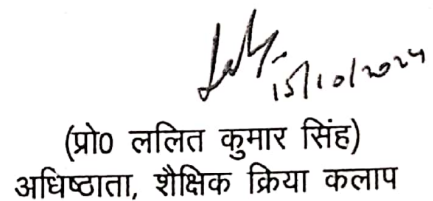 15/10/2024
(प्रो0 ललित कुमार सिंह)
अधिष्ठाता, शैक्षिक क्रिया कलाप